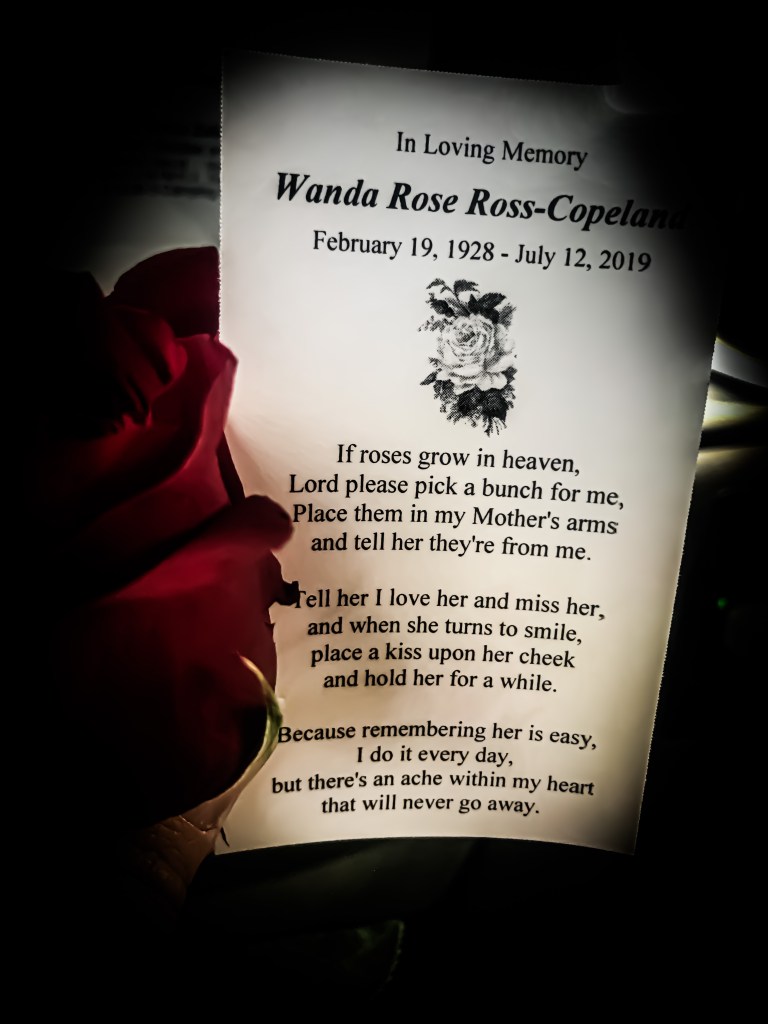 In Loving Memory
Wanda Rose Ross-Copeland
February 19, 1928 - July 12, 2019
If roses grow in heaven,
Lord please pick a bunch for me,
Place them in my Mother's arms
and tell her they're from me.
Tell her I love her and miss her,
and when she turns to smile,
place a kiss upon her cheek
and hold her for a while.
Because remembering her is easy,
I do it every day,
but there's an ache within my heart
that will never go away.